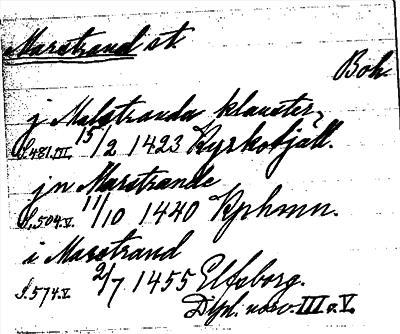 Marstrand st.
Boh.
j Malstranda klauster,
S.481.III. 15/2 1423 Kyrkobjäll.
jn Marstrande
S.504.V. 11/10 1440 Kphmn.
i Marstrand
S.574.V. 2/7 1455 Elfsborg.
Dipl. norv. III o. V.